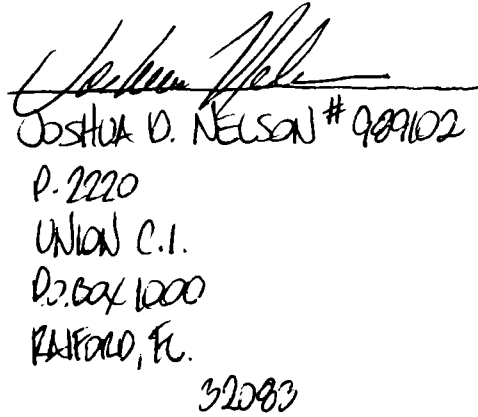 Joshua Nelson
JOSHUA D. NELSON # 989102
P-2220
UNION C.I.
P.O. BOX 1000
RAIFORD, FL.
32083